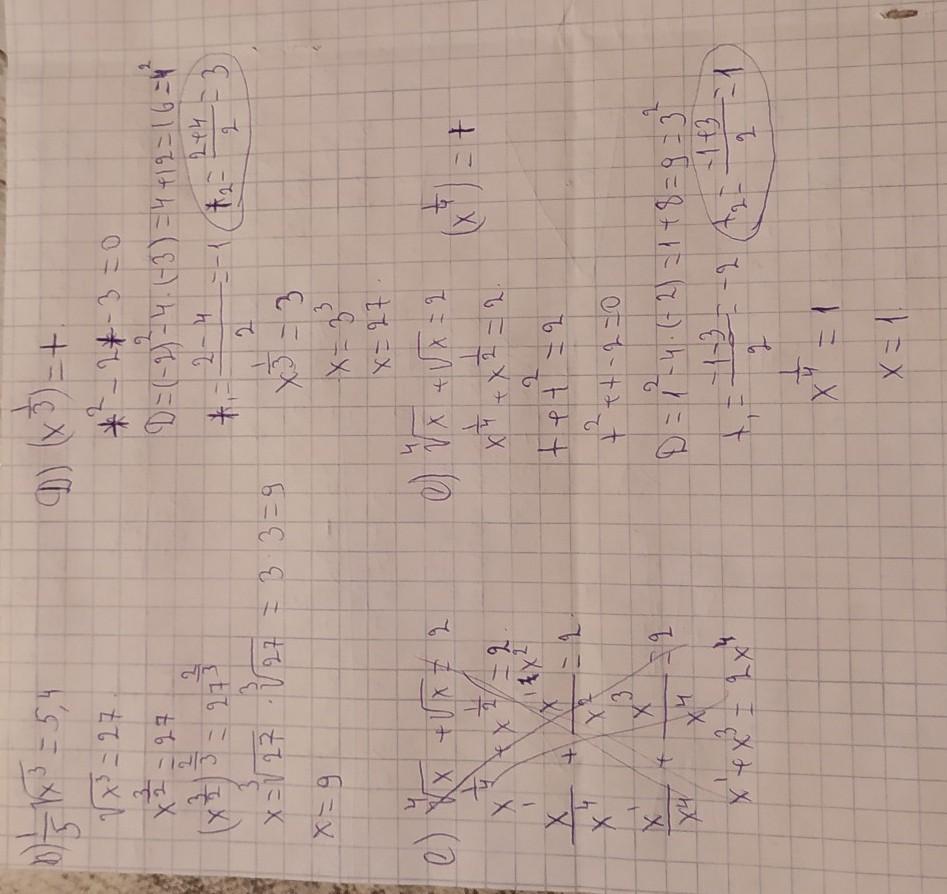 в) 1/5 √x³ = 5,4
√x³ = 27
x^(3/2) = 27
(x^(3/2))^(2/3) = 27^(2/3)
x = ³√27 · ³√27 = 3 · 3 = 9
x = 9
е) ⁴√x + √x = 2
x^(1/4) + x^(1/2) = 2
x¹/x⁴ + x¹/x² = 2
x¹/x⁴ + x³/x⁴ = 2
x¹ + x³ = 2x⁴
д) (x^(1/3)) = t
t² - 2t - 3 = 0
D = (-2)² - 4 · (-3) = 4 + 12 = 16 = 4²
t₁ = (2-4)/2 = -1 t₂ = (2+4)/2 = 3
x^(1/3) = 3
x = 3³
x = 27
е) ⁴√x + √x = 2
x^(1/4) + x^(1/2) = 2 (x^(1/4)) = t
t + t² = 2
t² + t - 2 = 0
D = 1² - 4 · (-2) = 1 + 8 = 9 = 3²
t₁ = (-1-3)/2 = -2 t₂ = (-1+3)/2 = 1
x^(1/4) = 1
x = 1